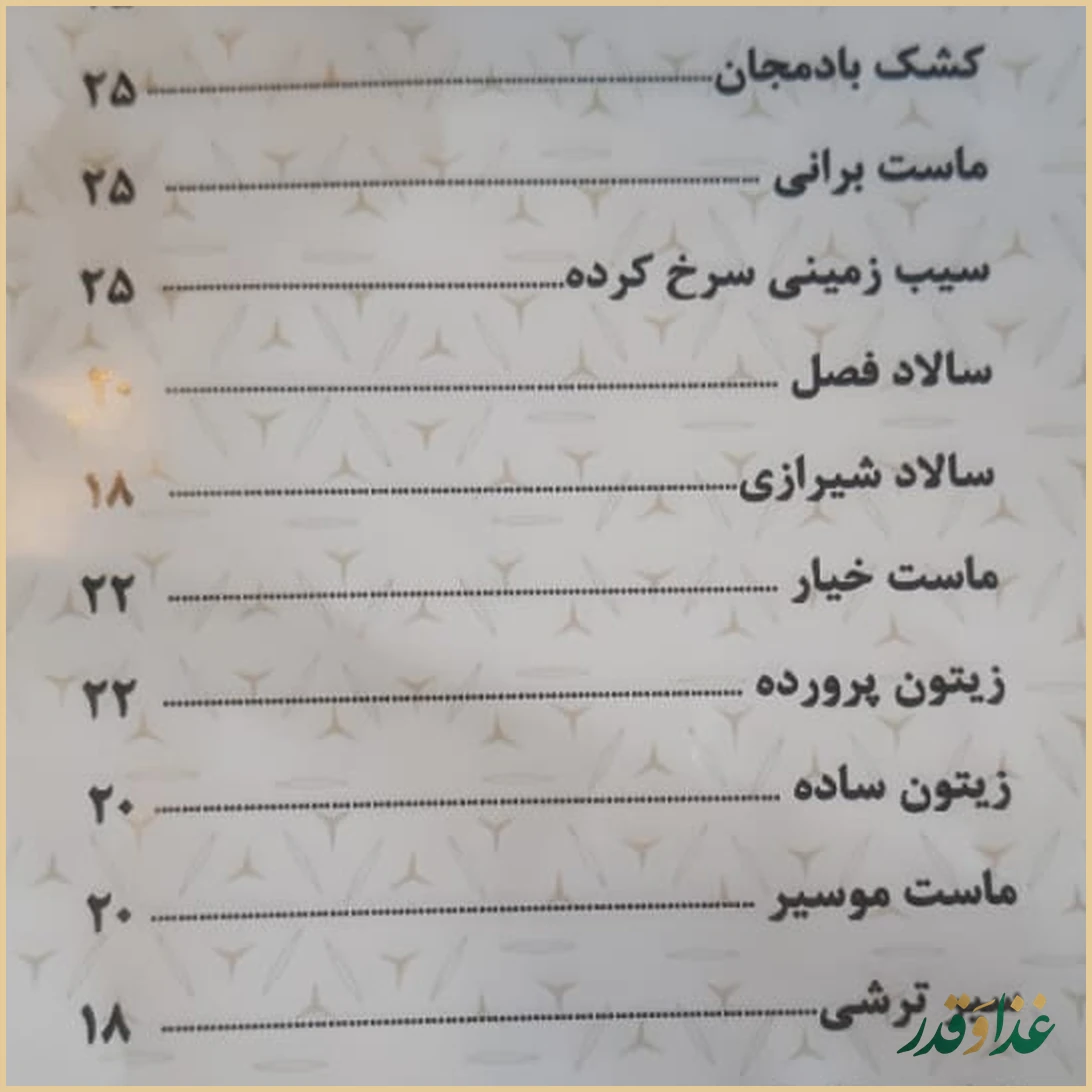 کشک بادمجان ۲۵
ماست برانی ۲۵
سیب زمینی سرخ کرده ۲۵
سالاد فصل ۲۰
سالاد شیرازی ۱۸
ماست خیار ۲۲
زیتون پرورده ۲۲
زیتون ساده ۲۰
ماست موسیر ۲۰
سیر ترشی ۱۸
غذا و قدر